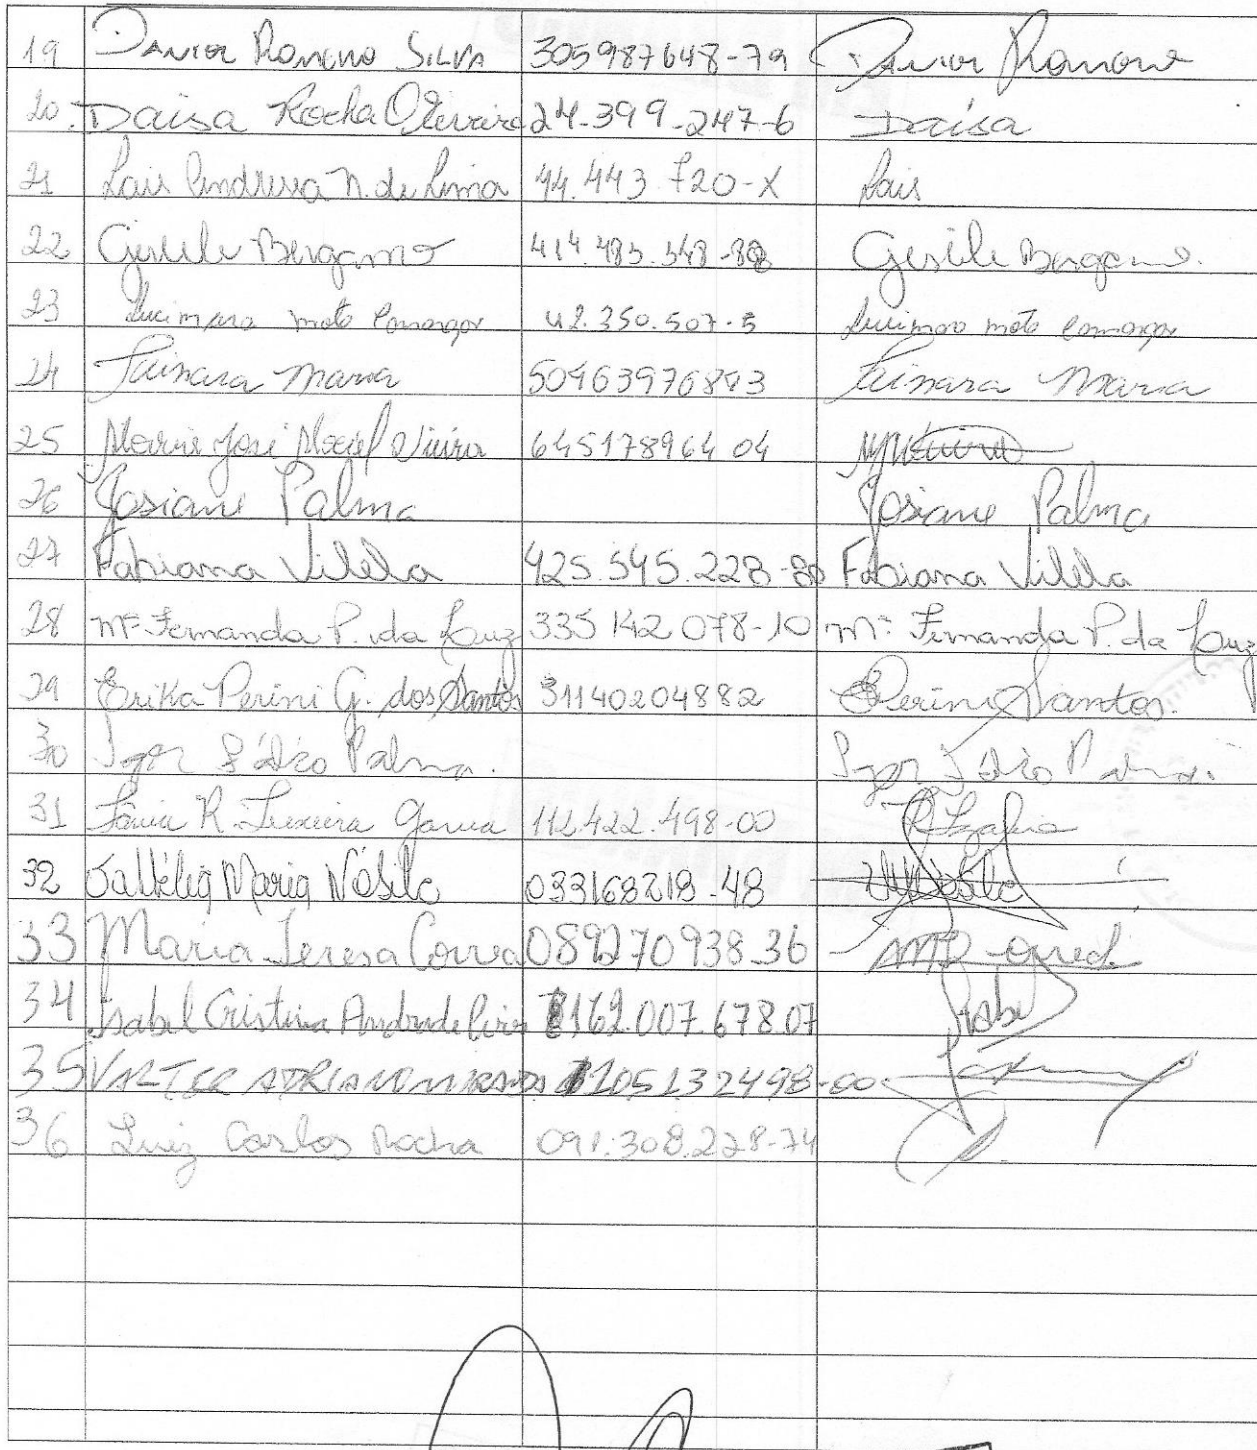 19 Romano Silva 305987648-79 Romano
20 Daisa Rocha Oliveira 24.399.247-6 Daisa
21 Lais Andressa N. de Lima 44.443.720-X Lais
22 Gisele Bergamo Gisele Bergamo.
23 Lucimara mota Camargo 42.350.507-5 Lucimara mota Camargo
24 Tainara Maria Tainara Maria
25 Maria José Maciel Vieira 645178964 04
26 Josiane Palma Josiane Palma
27 Fabiana Vilela 425.545.228-80 Fabiana Vilela
28 Mª Fernanda P. da Luz 335 142 078-10 Mª Fernanda P. da Luz
29 Erika Perini G. dos Santos 31140204882 Perini Santos.
30 Igor Palma. Igor
31 R. Teixeira Garcia 112.422.498-00
32 Maria 033168218-48
33 Maria Teresa Correa 089270938.36
34 Isabel Cristina Andrade 162.007.678.07 Isabel
35 105132498-00
36 Luiz Carlos Rocha 091.308.228-74